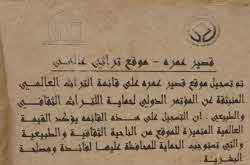 قصير عمره - موقع تراثي عالمي
تم تسجيل موقع قصير عمره على قائمة التراث العالمي
المنبثقة عن المؤتمر الدولي لحماية التراث الثقافي
والطبيعي . ان التسجيل على هذه القائمه يؤكد القيمة
العالمية المتميزة للموقع من الناحية الثقافية والطبيعية
والتي تستوجب الحماية للمحافظة عليها لفائدة ومصلحة
البشرية